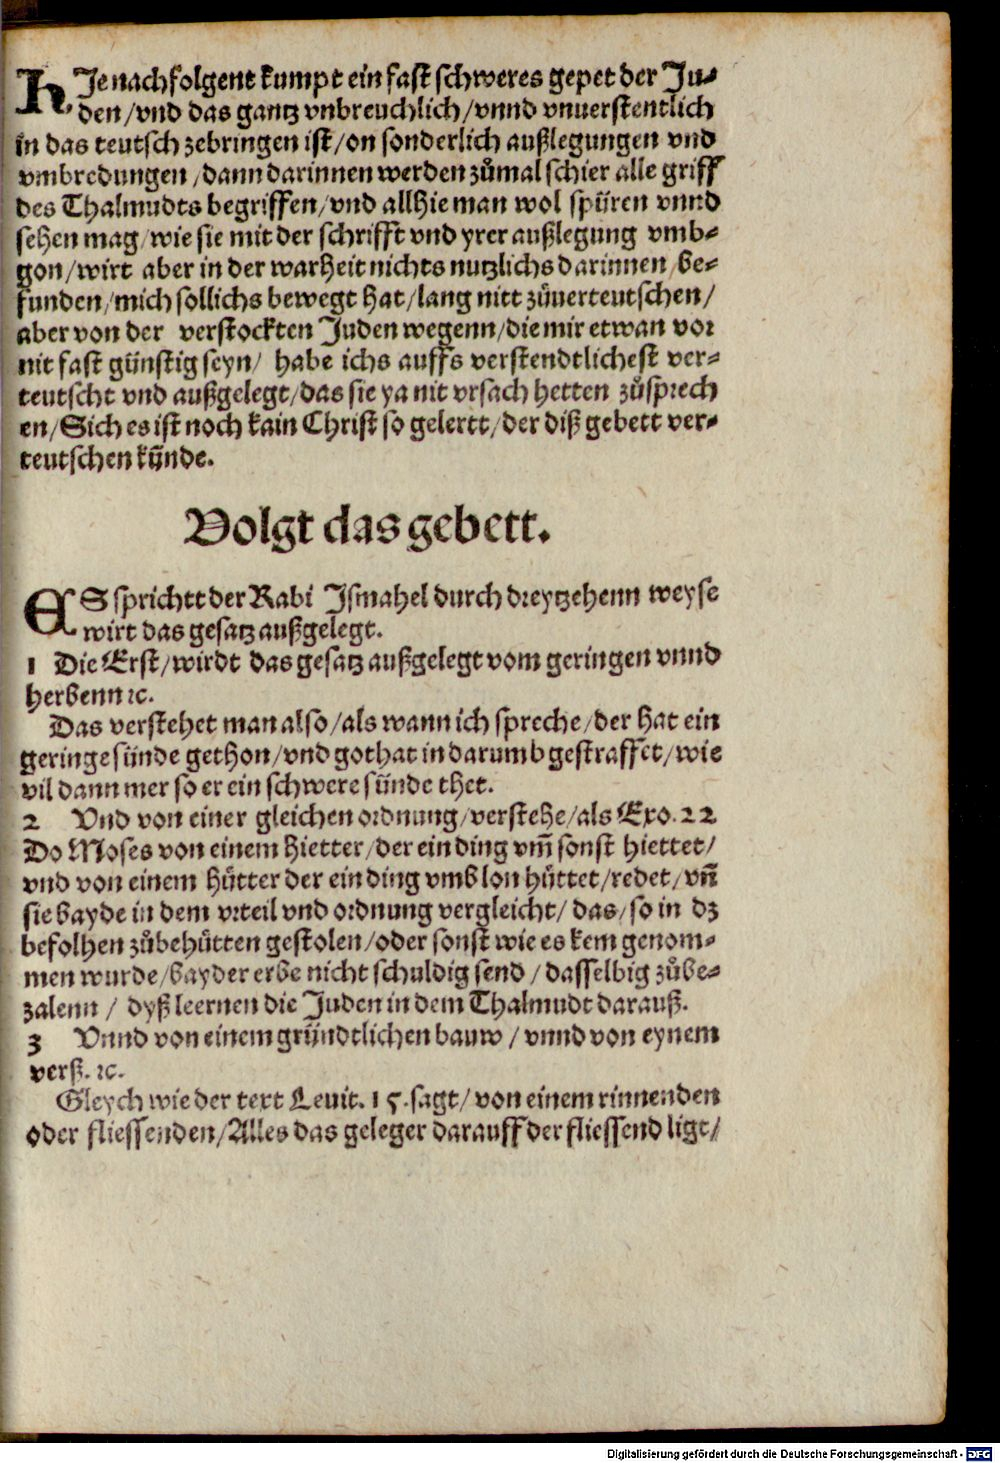 HJe nachfolgent kumpt ein fast schweres gepet der Ju⸗
den/vnd das gantz vnbreuchlich/vnnd vnuerstentlich
in das teutsch zebringen ist/on sonderlich außlegungen vnd
vmbredungen/dann darinnen werden zůmal schier alle griff
des Thalmudts begriffen/vnd allhie man wol spüren vnnd
sehen mag/wie sie mit der schrifft vnd yrer außlegung vmb⸗
gon/wirt aber in der warheit nichts nutzlichs darinnen/be⸗
funden/mich sollichs bewegt hat/lang nitt zůuerteutschen/
aber von der verstockten Juden wegenn/die mir etwan vor
nit fast günstig seyn/ habe ichs auffs verstendtlichest ver⸗
teutscht vnd außgelegt/das sie ya nit vrsach hetten zůsprech
en/Sich es ist noch kain Christ so gelertt/der diß gebett ver⸗
teutschen künde.
Volgt das gebett.
ES sprichtt der Rabi Jsmahel durch dreytzehenn weyse
wirt das gesatz außgelegt.
1 Die Erst/wirdt das gesatz außgelegt vom geringen vnnd
herbenn ꝛc.
Das verstehet man also/als wann ich spreche/der hat ein
geringe sünde gethon/vnd got hat in darumb gestraffet/wie
vil dann mer so er ein schwere sünde thet.
2 Vnd von einer gleichen ordnung/verstehe/als Exo. 22
Do Moses von einem hietter/der ein ding vm̄ sonst hiettet/
vnd von einem hütter der ein ding vmb lon hüttet/redet/vn̄
sie bayde in dem vrteil vnd ordnung vergleicht/ das/so in dz
befolhen zůbehütten gestolen/oder sonst wie es kem genom⸗
men wurde/bayder erbe nicht schuldig send/dasselbig zůbe⸗
zalenn/ dyß leernen die Juden in dem Thalmudt darauß.
3 Vnnd von einem gründtlichen bauw/vnnd von eynem
verß. ꝛc.
Gleych wie der text Leuit. 15. sagt/von einem rinnenden
oder fliessenden/Alles das geleger darauff der fliessend ligt/
Digitalisierung gefördert durch die Deutsche Forschungsgemeinschaft - DFG